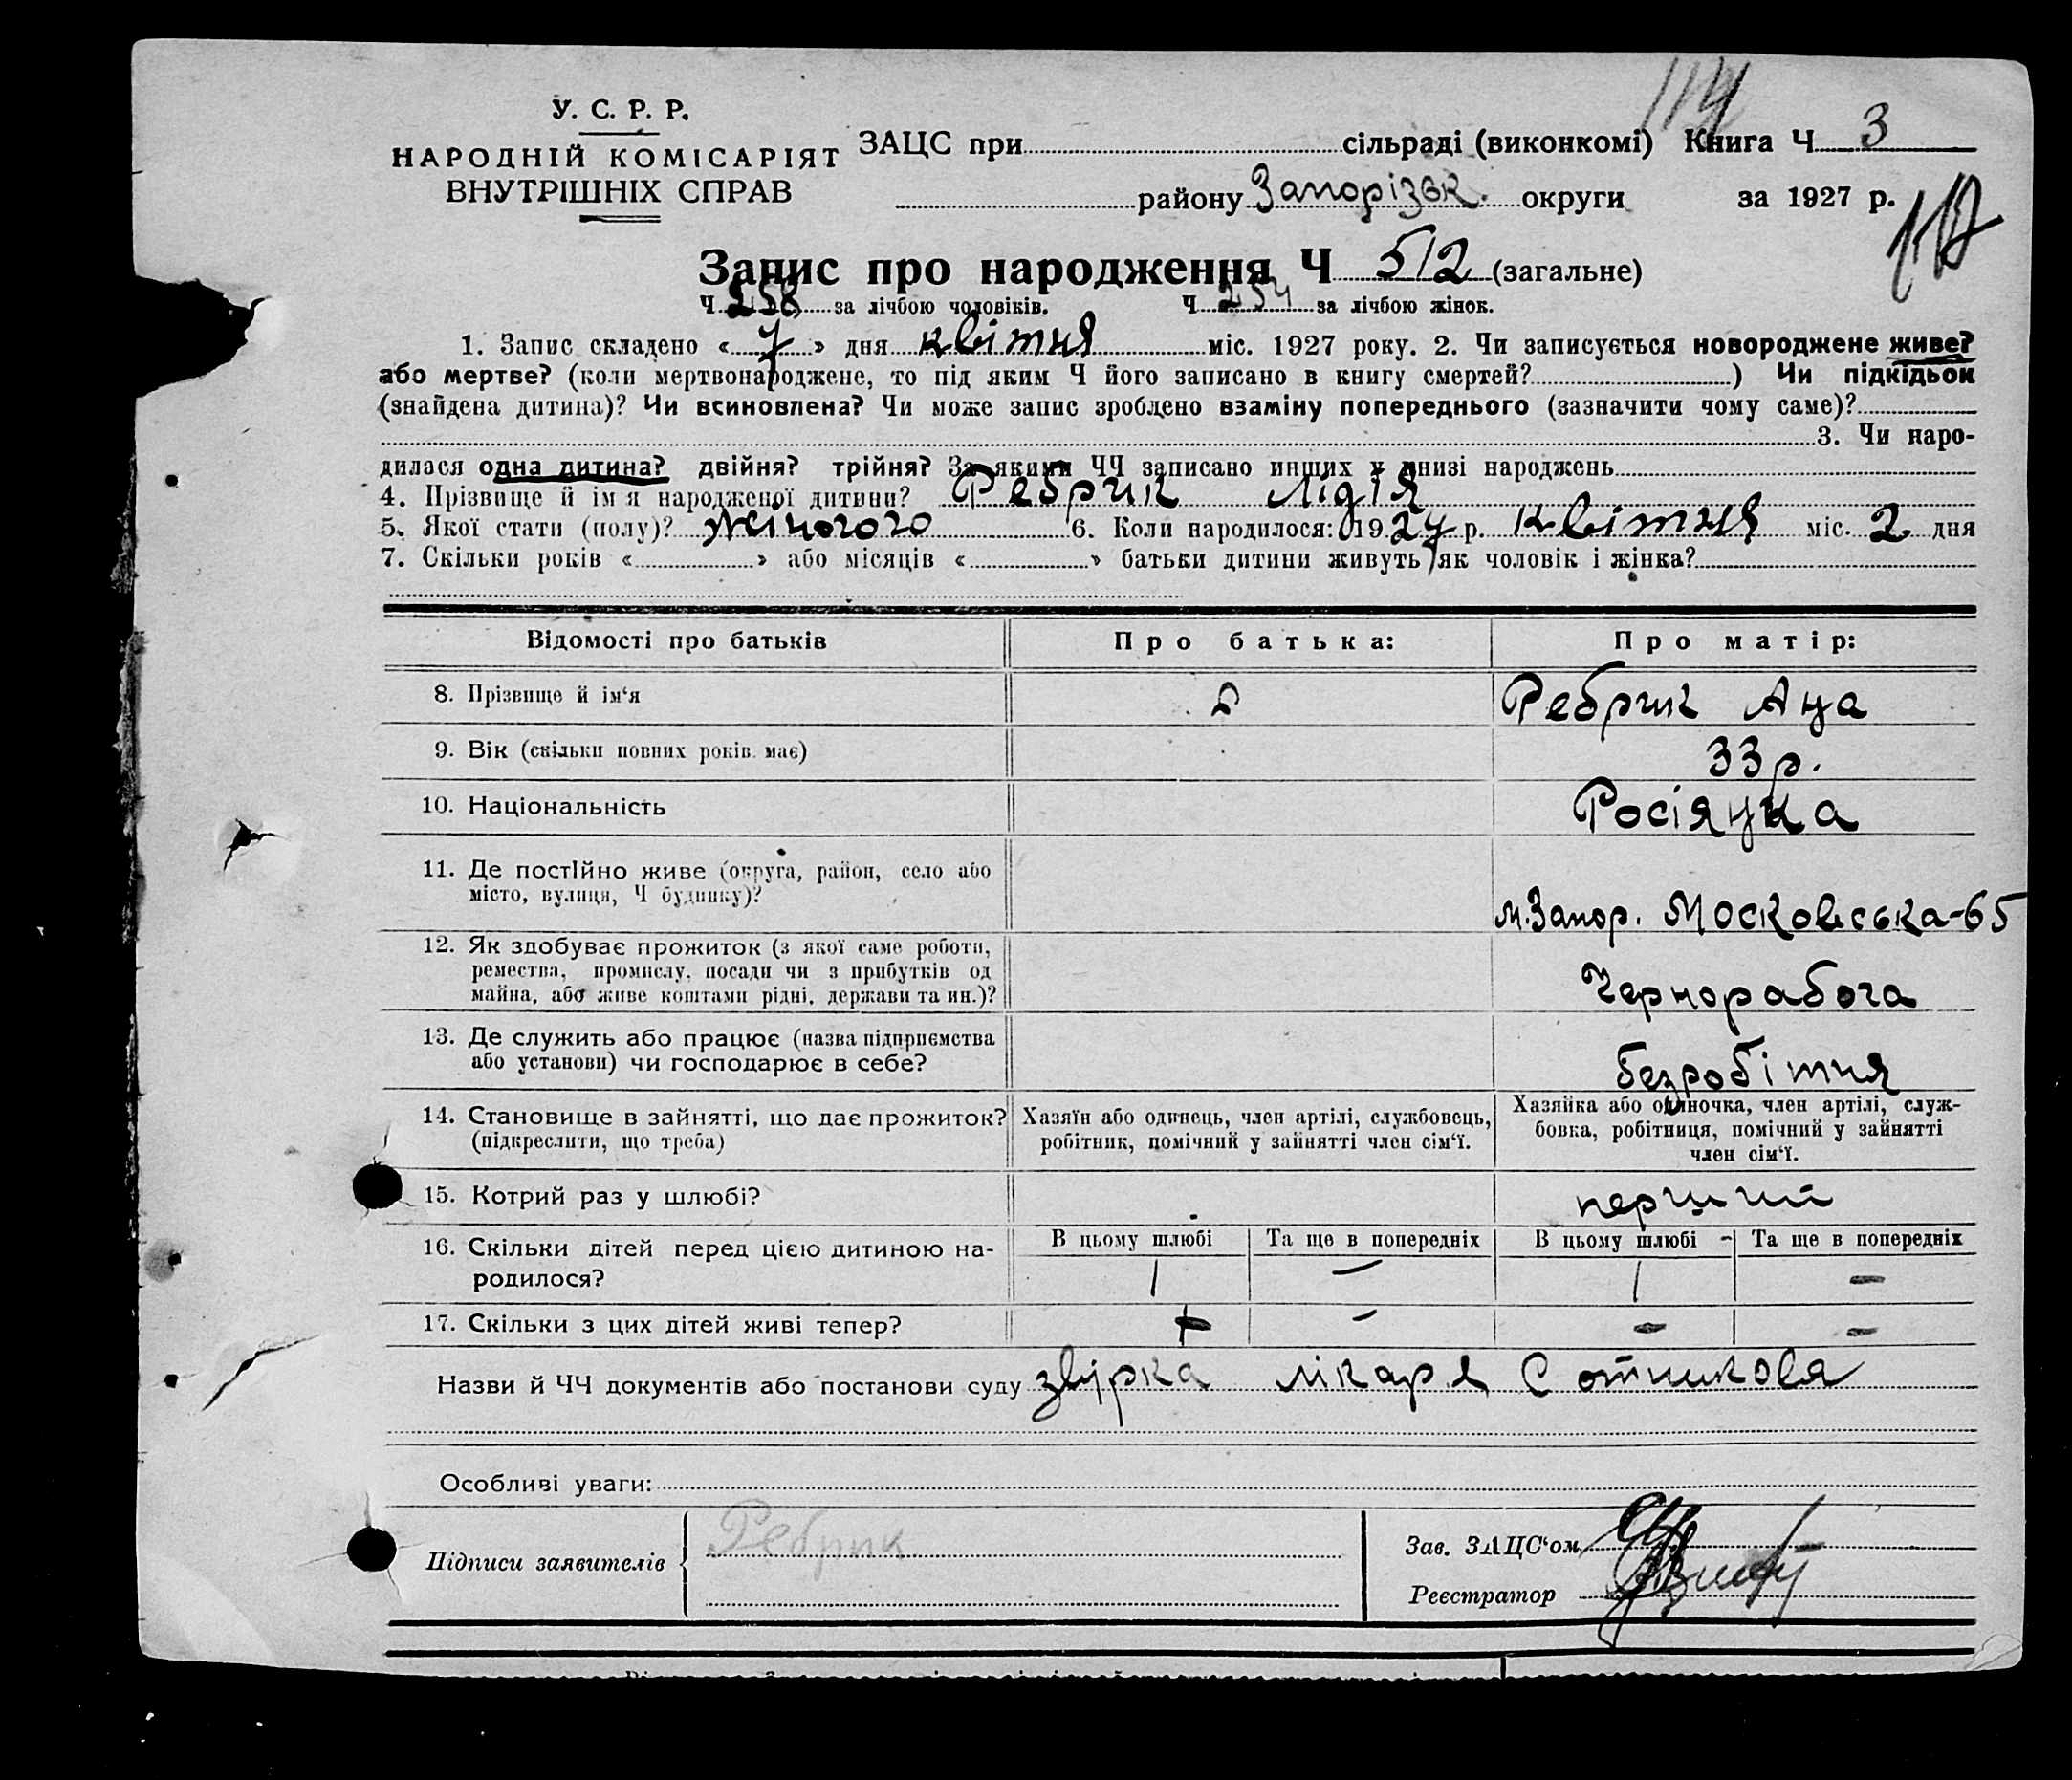 114
У. С. Р. Р.
НАРОДНІЙ КОМІСАРІЯТ
ВНУТРІШНІХ СПРАВ
ЗАЦС при сільраді (виконкомі) Книга Ч 3
району Запорізьк. округи за 1927 р.
117
Запис про народження Ч 512 (загальне)
Ч 258 за лічбою чоловіків. Ч 254 за лічбою жінок.
1. Запис складено « 7 » дня квітня міс. 1927 року. 2. Чи записується новороджене живе?
або мертве? (коли мертвонароджене, то під яким Ч його записано в книгу смертей? ) Чи підкідьок
(знайдена дитина)? Чи всиновлена? Чи може запис зроблено взаміну попереднього (зазначити чому саме)?
3. Чи наро-
дилася одна дитина? двійня? трійня? За якими ЧЧ записано инших у книзі народжень
4. Прізвище й ім'я народженої дитини? Ребрик Лідія
5. Якої стати (полу)? жіночого 6. Коли народилося: 1927 р. квітня міс. 2 дня
7. Скільки років « » або місяців « » батьки дитини живуть як чоловік і жінка?
Відомості про батьків Про батька: Про матір:
8. Прізвище й ім'я Ребрик Ана
9. Вік (скільки повних років має) 33 р.
10. Національність Росіянка
11. Де постійно живе (округа, район, село або
місто, вулиця, Ч будинку)? м. Запор. Московська-65
12. Як здобуває прожиток (з якої саме роботи,
ремества, промислу, посади чи з прибутків од
майна, або живе коштами рідні, держави та ин.)? Чернорабоча
13. Де служить або працює (назва підприємства
або установи) чи господарює в себе? безробітня
14. Становище в зайнятті, що дає прожиток?
(підкреслити, що треба)
Хазяїн або одинець, член артілі, службовець,
робітник, помічний у зайнятті член сім'ї.
Хазяйка або одиночка, член артілі, служ-
бовка, робітниця, помічний у зайнятті
член сім'ї.
15. Котрий раз у шлюбі? перший
16. Скільки дітей перед цією дитиною на-
родилося?
В цьому шлюбі Та ще в попередніх В цьому шлюбі Та ще в попередніх
1 — 1 —
17. Скільки з цих дітей живі тепер? + - - -
Назви й ЧЧ документів або постанови суду звірка лікаря Сотникова
Особливі уваги:
Підписи заявителів Ребрик
Зав. ЗАЦС'ом
Реєстратор